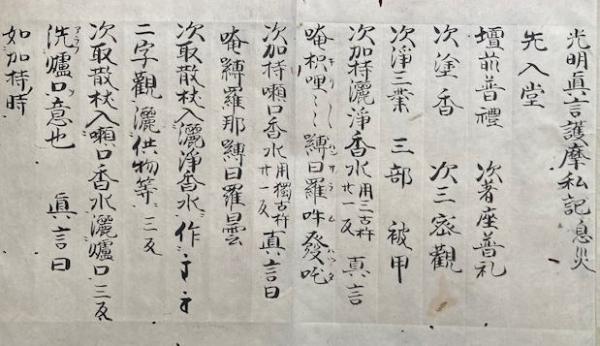 光明真言護摩私記 息災
先入堂
壇前普禮 次著座普礼
次塗香 次三密觀
次淨三業 三部 被甲
次加持灑淨香水 用三古杵 廿一反 真言
唵枳哩〻〻縛日羅吽發吒
次加持嗽口香水 用獨古杵 廿一反 真言曰
唵縛羅那縛日羅曇
次取散杖入灑淨香水作
二字觀灑供物等 三反
次取散杖入嗽口香水灑爐口 三反
洗爐口意也 真言曰
如加持時